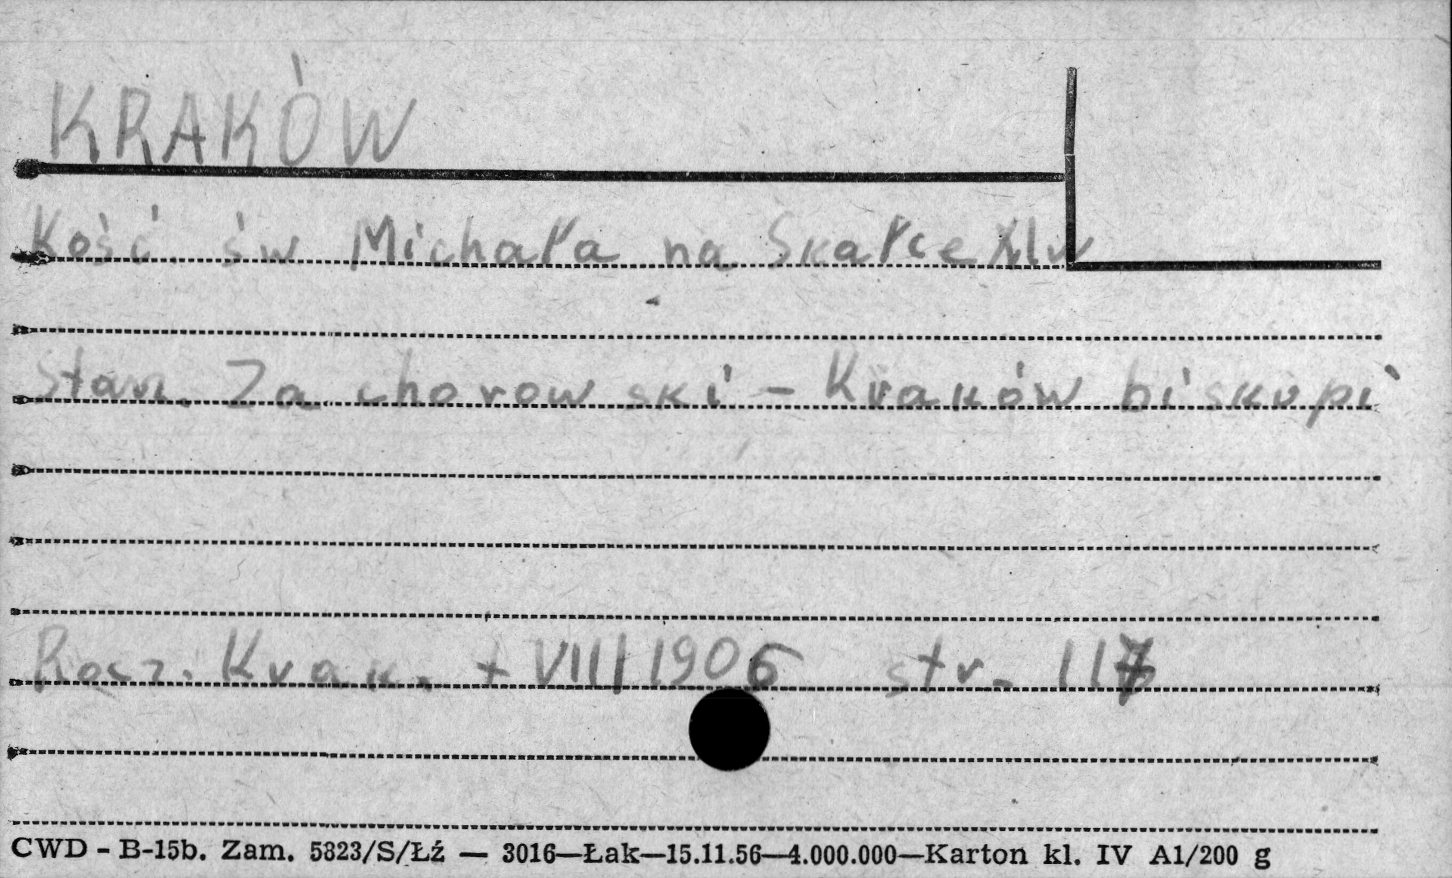 KRAKÓW
Kość. św Michała na Skałce XI w
Stan. Zachorowski - Kraków biskupi
Rocz. Krak. t VIII/1906 str. 117
CWD - B-15b. Zam. 5823/S/Łź — 3016—Łak—15.11.56—4.000.000—Karton kl. IV A1/200 g